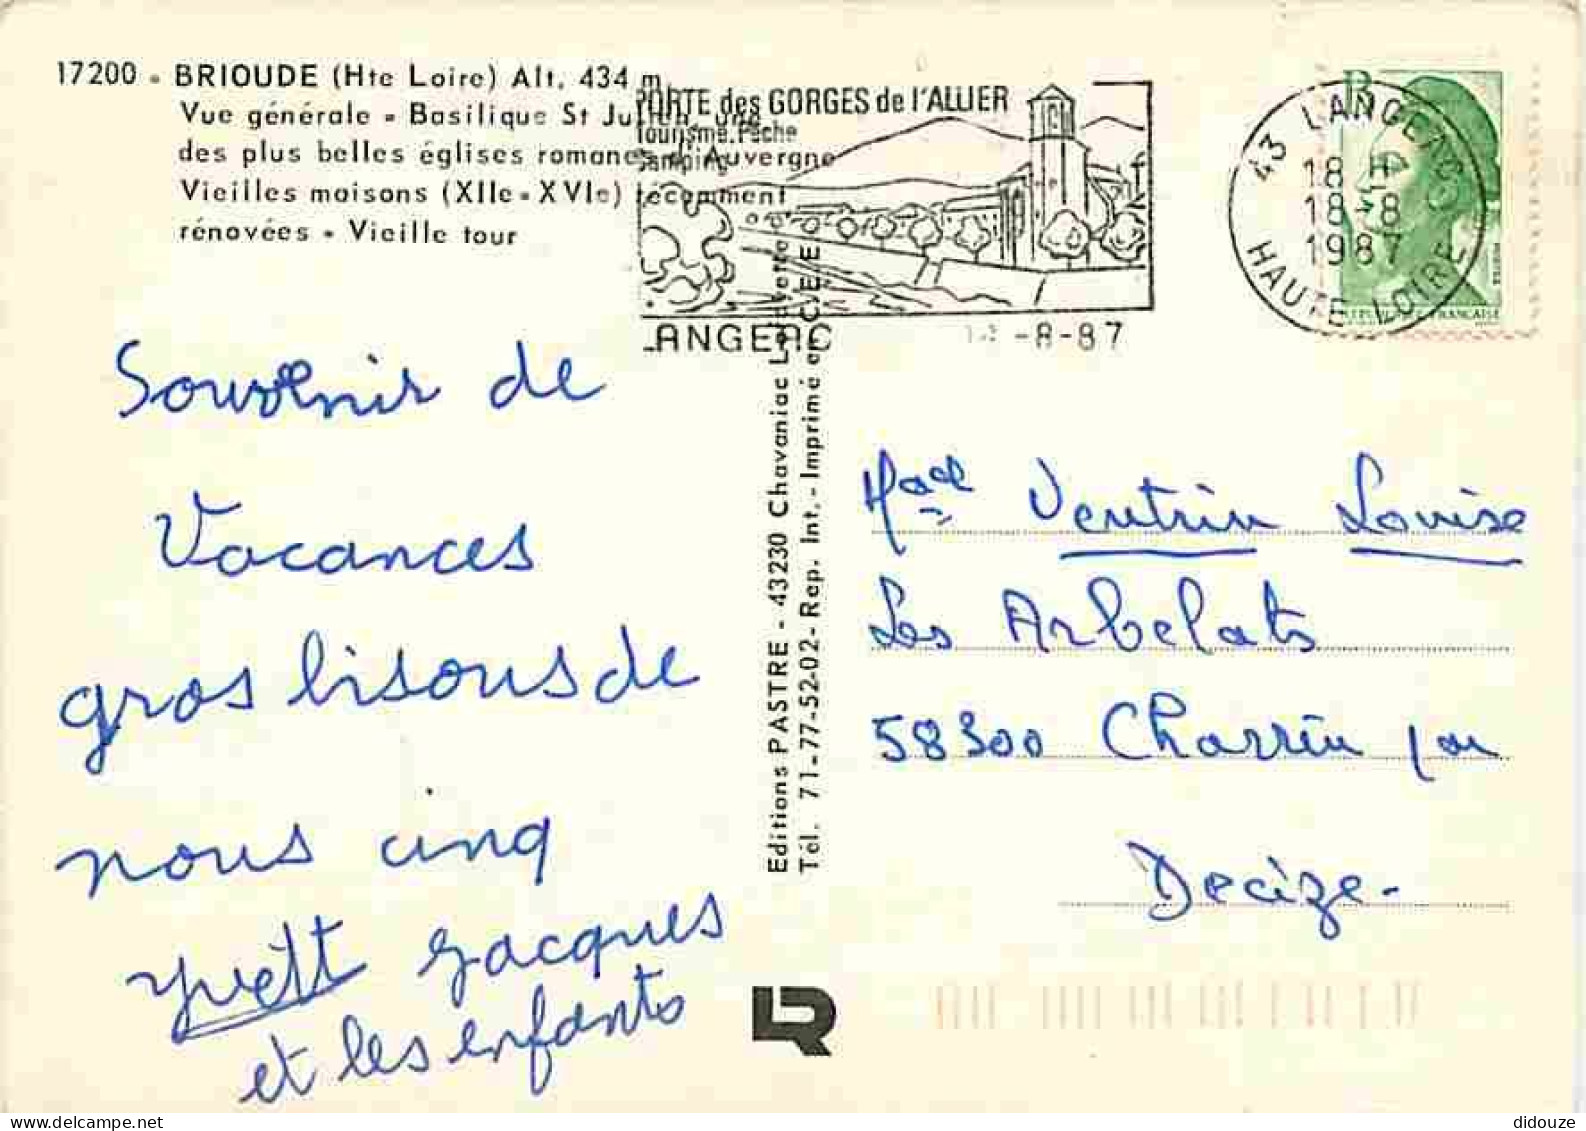 17200 - BRIOUDE (Hte Loire) Alt. 434 m
Vue générale - Basilique St Julien, une
des plus belles églises romanes d'Auvergne
Vieilles maisons (XIIe-XVIe) récemment
rénovées - Vieille tour
PORTE des GORGES de l'ALLIER
Tourisme. Pêche
Camping
LANGEAC -8-87
43 LANGEAC
18 H
18-8
1987
HAUTE-LOIRE
RÉPUBLIQUE FRANÇAISE
Souvenir de
Vacances
gros bisous de
nous cinq
Yvett Jacques
et les enfants
Editions PASTRE - 43230 Chavaniac Lafayette
Tél. 71-77-52-02 - Rep. Int. - Imprimé en C.E.E.
Ventrin Louise
Les Arbelats
58300 Charrin par
Decize -
LR
didouze